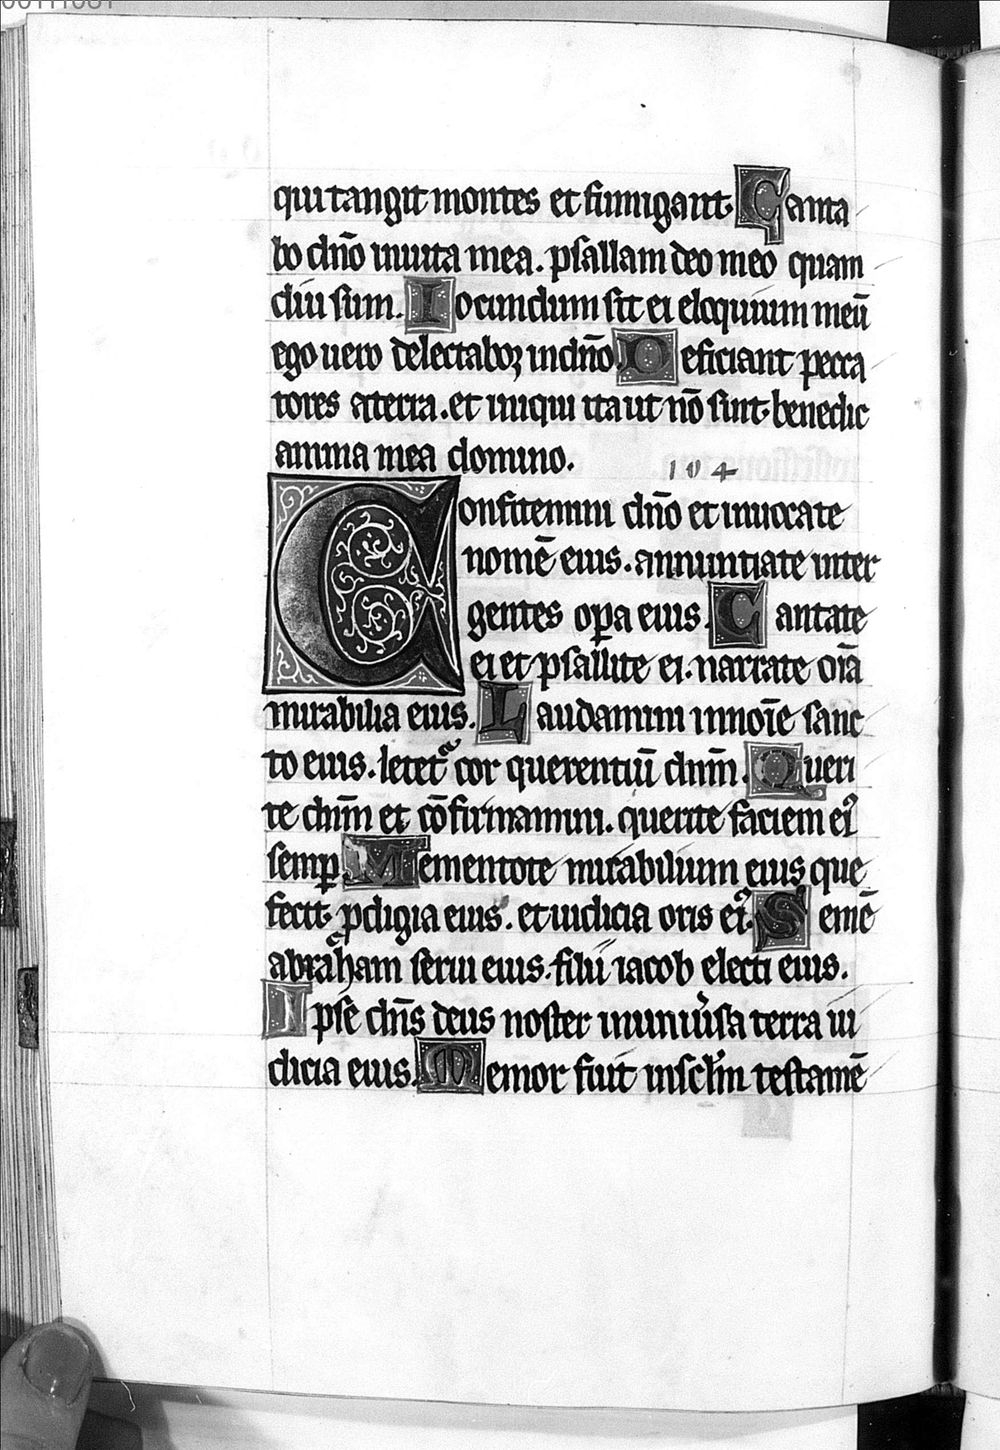 qui tangit montes et fumigant. Canta
bo dn̄o in uita mea. psallam deo meo quam
diu sum. Iocundum sit ei eloquium meū
ego uero delectaboꝛ in dn̄o. Deficiant pecca
tores a terra. et iniqui ita ut nō sint. benedic
anima mea domino.
104
Confitemini dn̄o et inuocate
nomē eius. annuntiate inter
gentes oꝑa eius. Cantate
ei et psallite ei. narrate om̄ia
mirabilia eius. Laudamini in noīe sanc
to eius. letetᵃ cor querentiū dn̄m. Queri
te dn̄m et cōfirmamini. querite faciem eiꝰ
semꝑ. Mementote mirabilium eius que
fecit. ꝓdigia eius. et iudicia oris eiꝰ. Semē
abraham serui eius. filii iacob electi eius.
Ipse dn̄s deus noster in uniu̓sa terra iu
dicia eius. Memor fuit in sc̄lm testamē